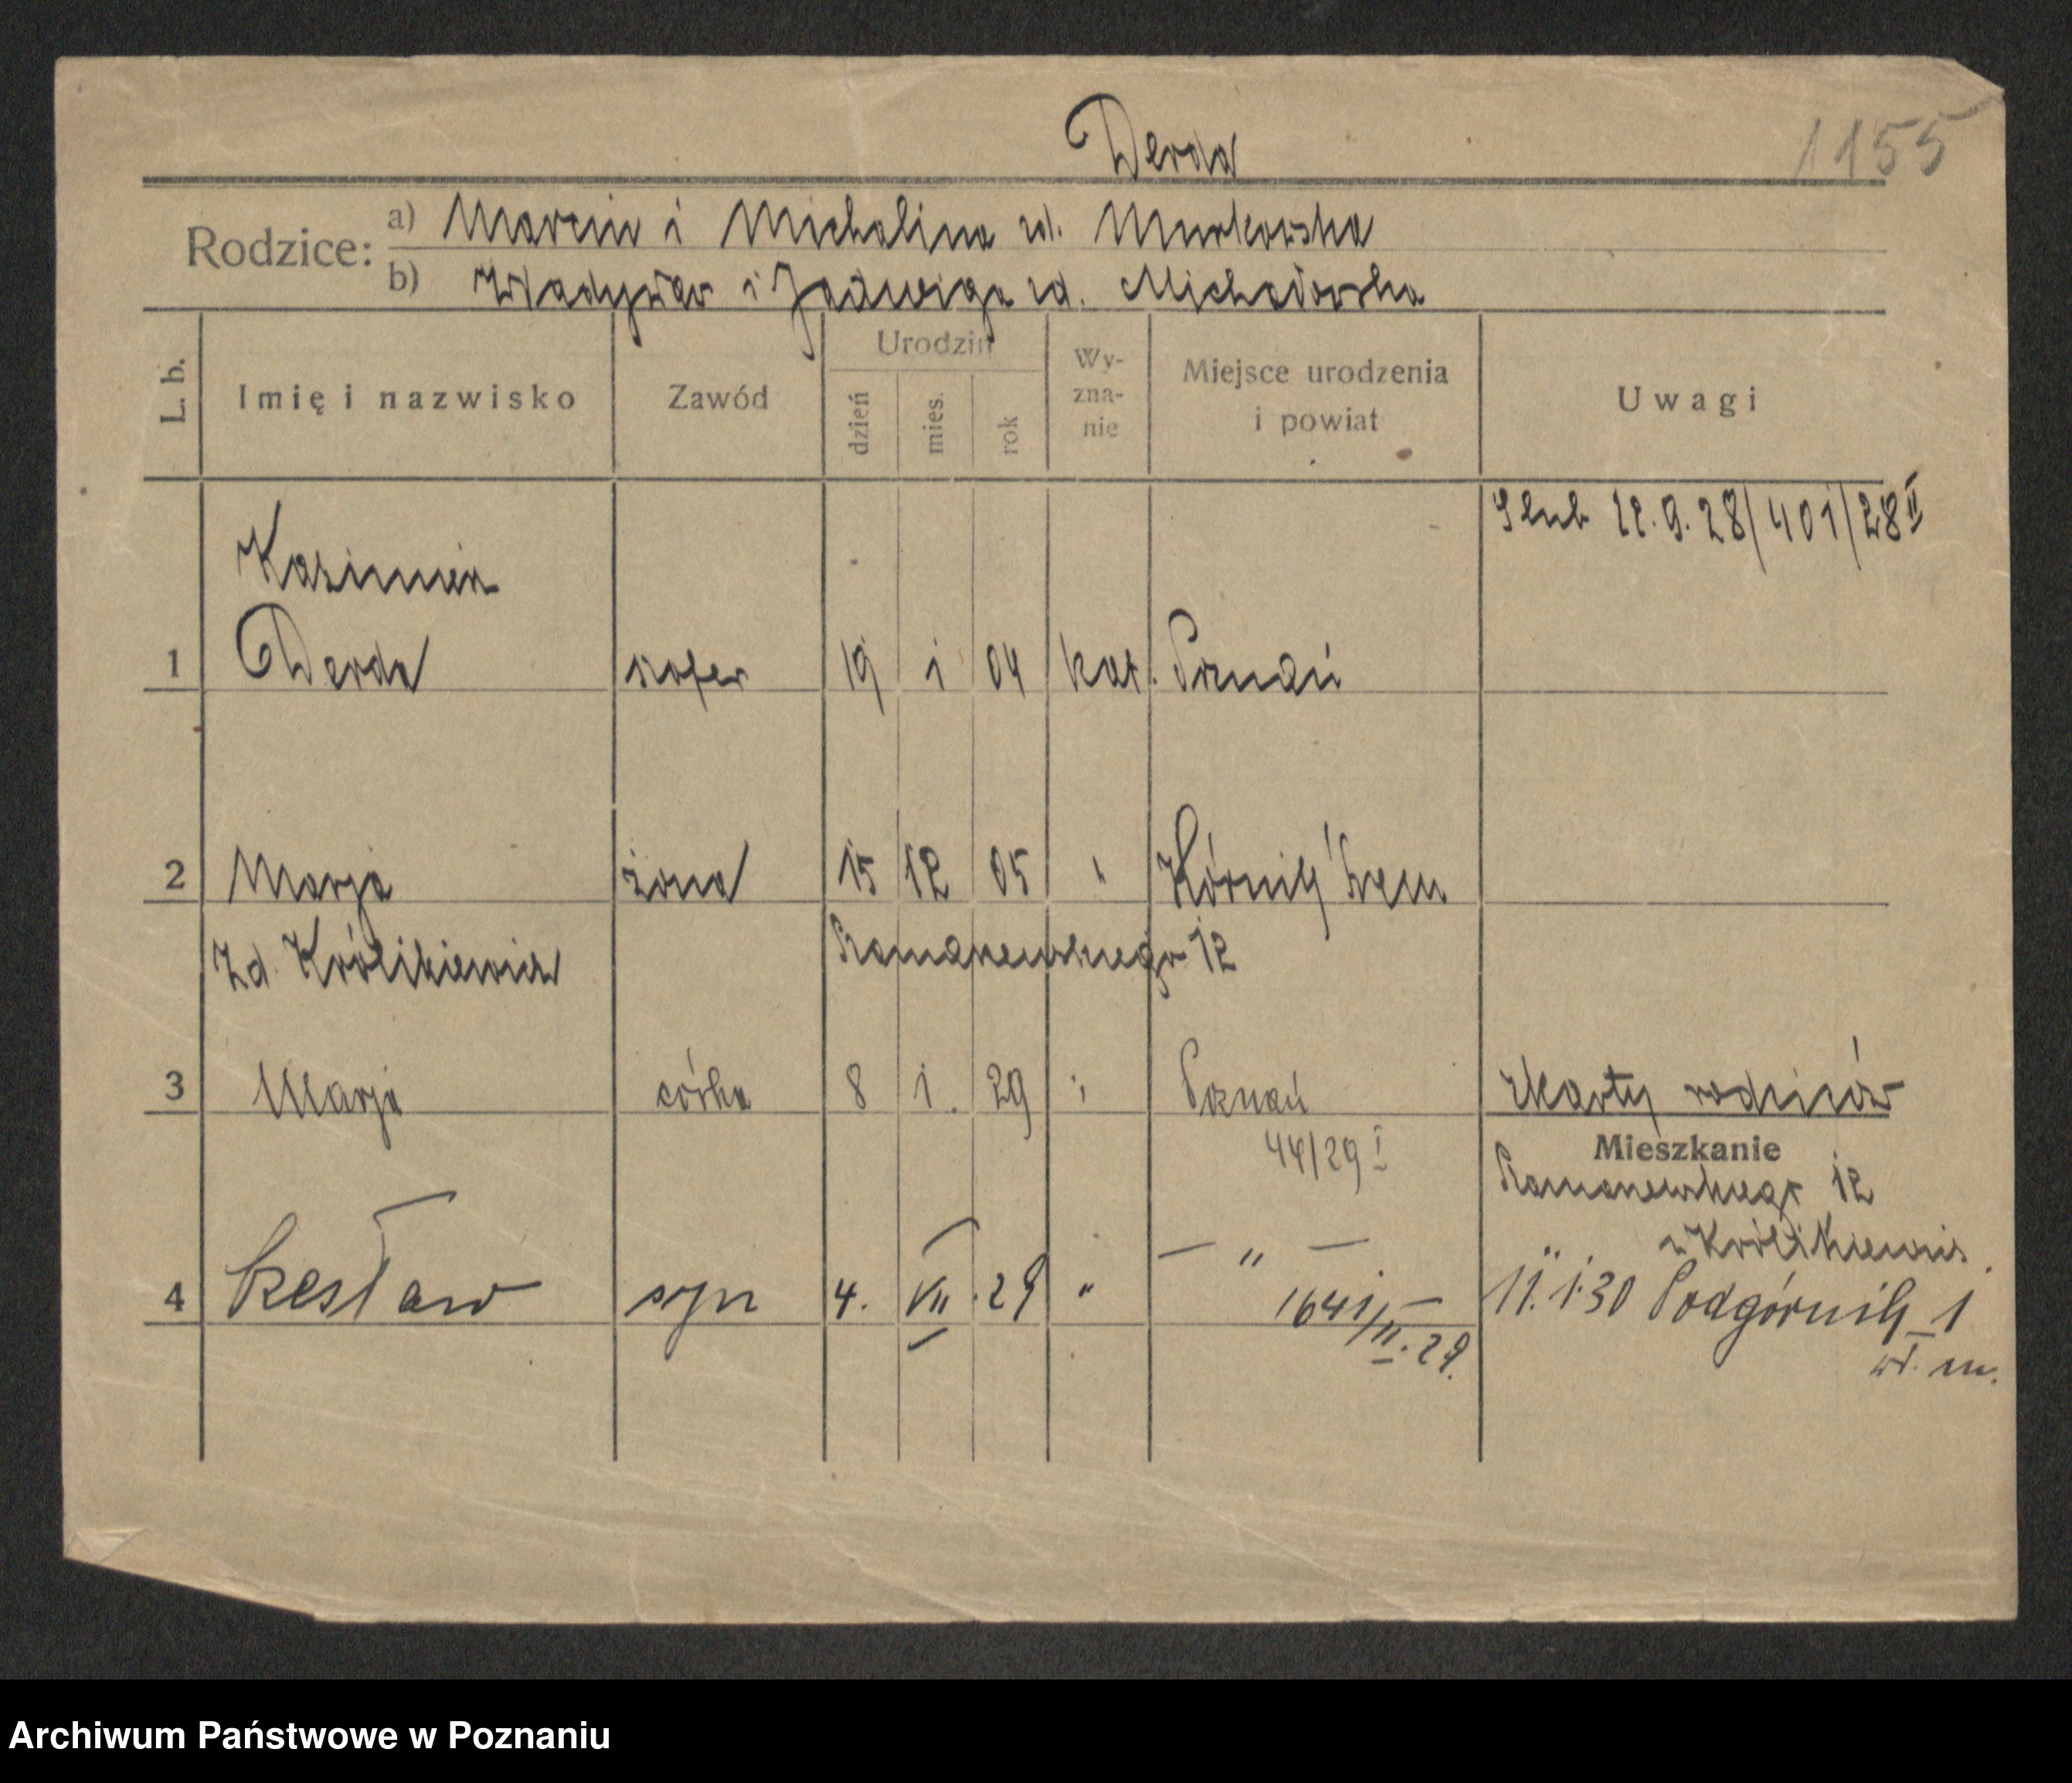 Derda
1155
Rodzice:
a) Marcin i Michalina zd. Murkowska
b) Władysław i Jadwiga zd. Michałowska
L. b.
Imię i nazwisko
Zawód
Urodzin
dzień
mies.
rok
Wy-
zna-
nie
Miejsce urodzenia
i powiat
Uwagi
Ślub 22.9.28/401/28 II
Kazimierz
1 Derda szofer 19 1 04 kat. Poznań
2 Marja żona 15 12 05 " Kórnik Śrem
Zd. Królikiewicz
12
3 Marja córka 8 1. 29 " Poznań Z karty rodziców
44/29 I
Mieszkanie
12
u Królikiewicz.
4 Czesław syn 4. VII. 29 " — " — 11.1.30 Podgórnik 1
1641/II. 29.
wł. m.
Archiwum Państwowe w Poznaniu